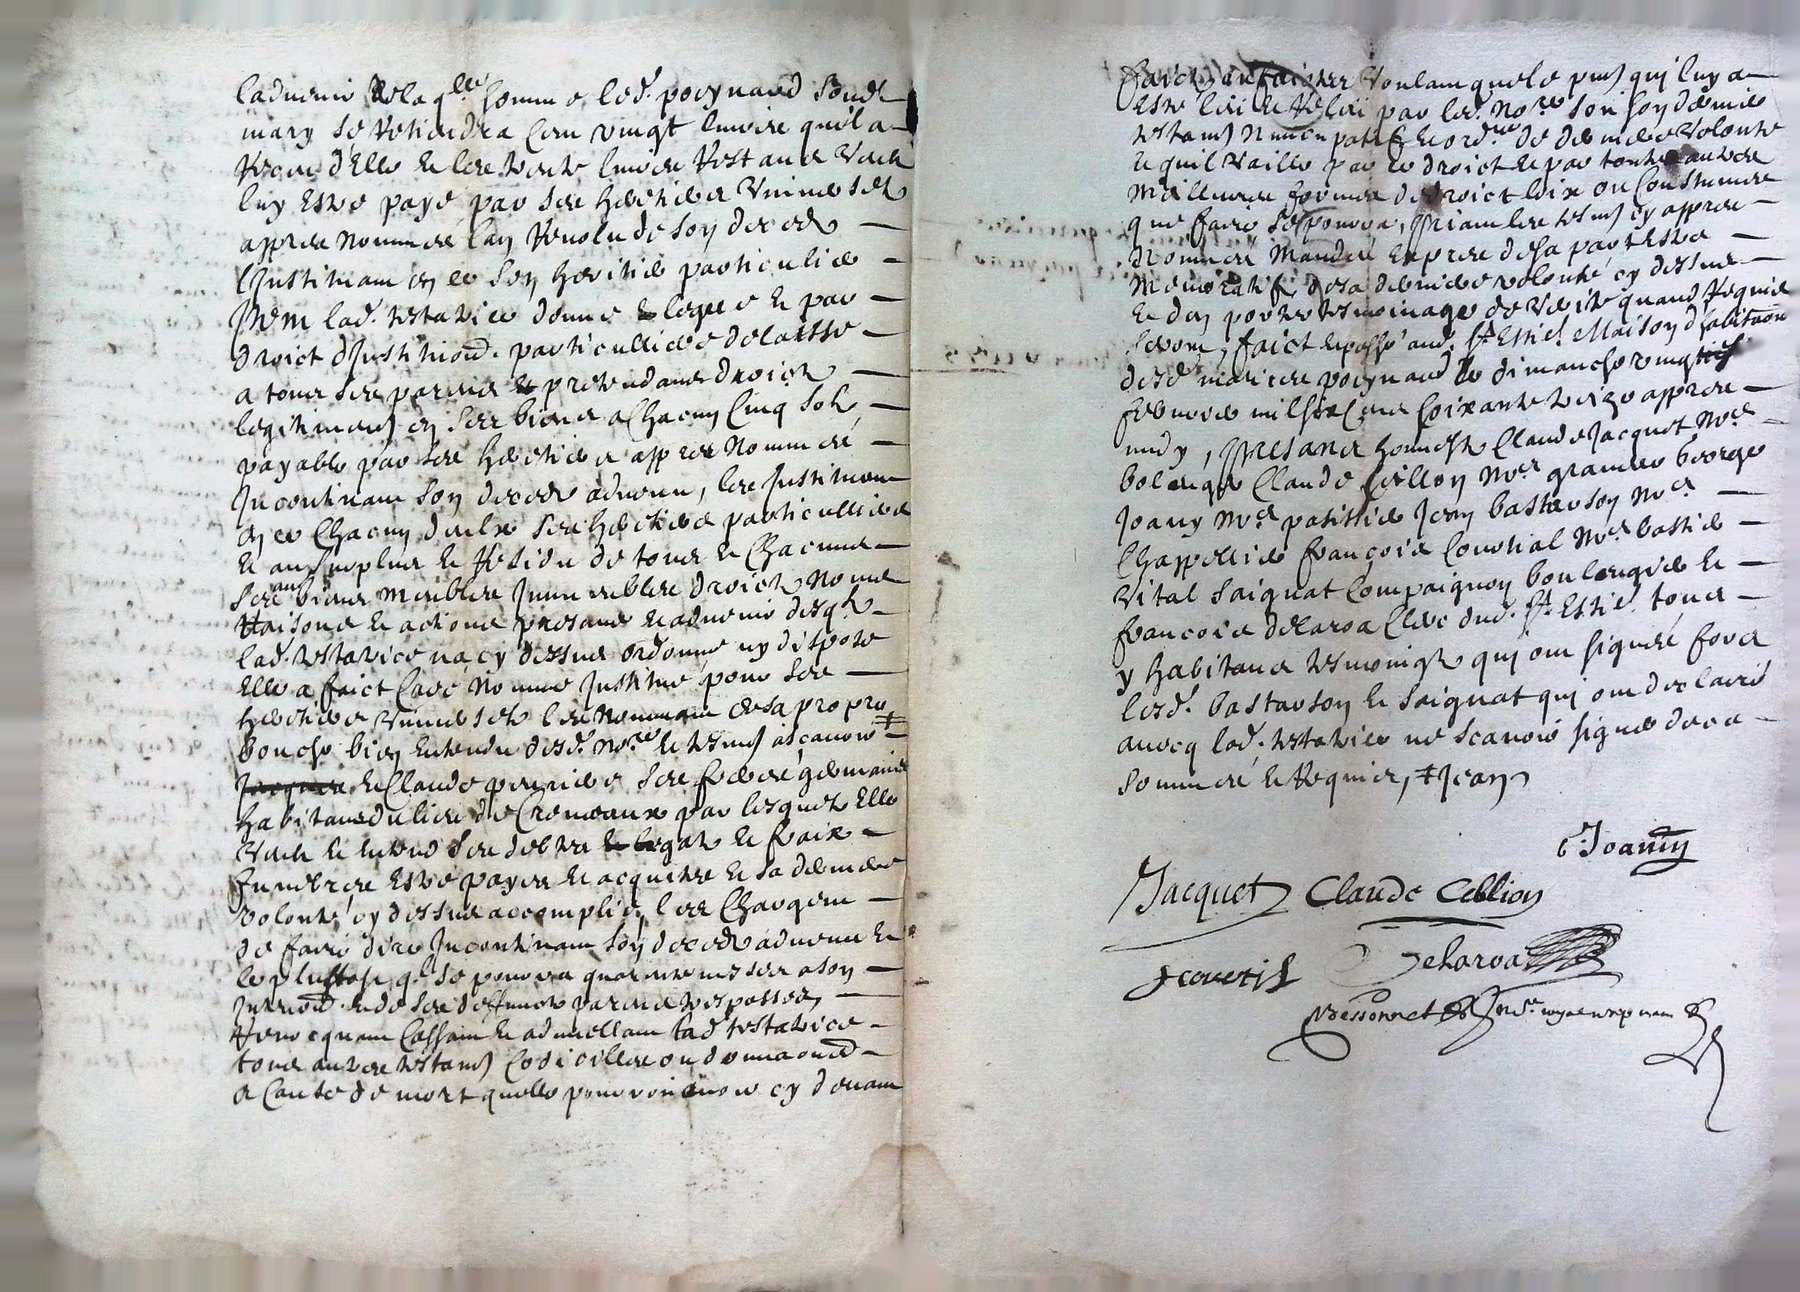 ladvenir de laq.lle somme led. poeynard sond.
mary se retiendra cent vingt livres quil a
receu d'elle et les trente livres restans veult
luy estre payé par ses heritiers universelz
appres nommes l'an revolu de son deces
l'instituant en ce son heritier particulier
Item lad. testatrice donne et legue et par
droict d'institu.on particulliere delaisse
a tous ses parens et pretendans droictz
legitimes en ses biens a chacun cinq solz
payable par ses heritiers appres nommés
incontinant son deces advenu, les instituant
en ce chacun d'eulx ses heritiers particulliers
et au surplus et residu de tous et chacuns
ses aut. biens meubles immeubles droictz noms
raisons et actions presans et advenir desqlz
lad. testatrice na cy dessus ordonné ny disposé
elle a faict creé nommé institué pour ses
heritiers universelz les nommant de sa propre
bouche bien entendu desd. no.re et tesmoings ascavoir ‡
et Claude perrier ses freres germains
habitans du lieu de Cremeaux par lesquelz elle
veult et entend ses debtes et legatz et fraix
funebres estre payes et acquittes et sa derniere
volonté cy dessus accomplie, les chargeant
de faire dire incontinant son deces advenu et
le plustost q. se pourra quarante messes a son
intention et de ses deffunctz parens trespassés,
revocquant cassant et adnullant lad. testatrice
tous autres testamens codicilles ou donna.ons
a cause de mort quelle pourroit avoir cy devant
faict, voulant que le pnt qui luy a
esté leu et releu par led. no.re soit son dernier
testament nuncupatif et ord.re de derniere volonté
et quil vaille par ce droict et par toutes autres
meilleures formes de droict loix ou coustumes
que faire se pourra, priant les tesmoings cy appres
nommes mandés expres de sa part estre
memoratifz de sa derniere volonté cy dessus
et den porter tesmoinage de verité quand requis
seront, faict et passé aud. St Estie. maison d'habitaon
desd. maries poeynard le dimanche vingtsix
febvrier mil six cens soixante treize appres
midy, presans honneste Claude Jacquet M.e
bolengier Claude Cellion M.e gramier George
Joany M.e patissier Jean bastarson M.e
Chappellier françois Courtial M.e bastier
Vital Saignat compaignon boulengier et
françois delaroa clerc dud. St Estie. tous
y habitans tesmoings qui ont signés fors
lesd. bastarson et Saignat qui ont declairé
avecq lad. testatrice ne scavoir signer de ce
sommés et requis, ‡ Jean
G Joanny
Jacquet Claude Cellion
f courtil Delaroa